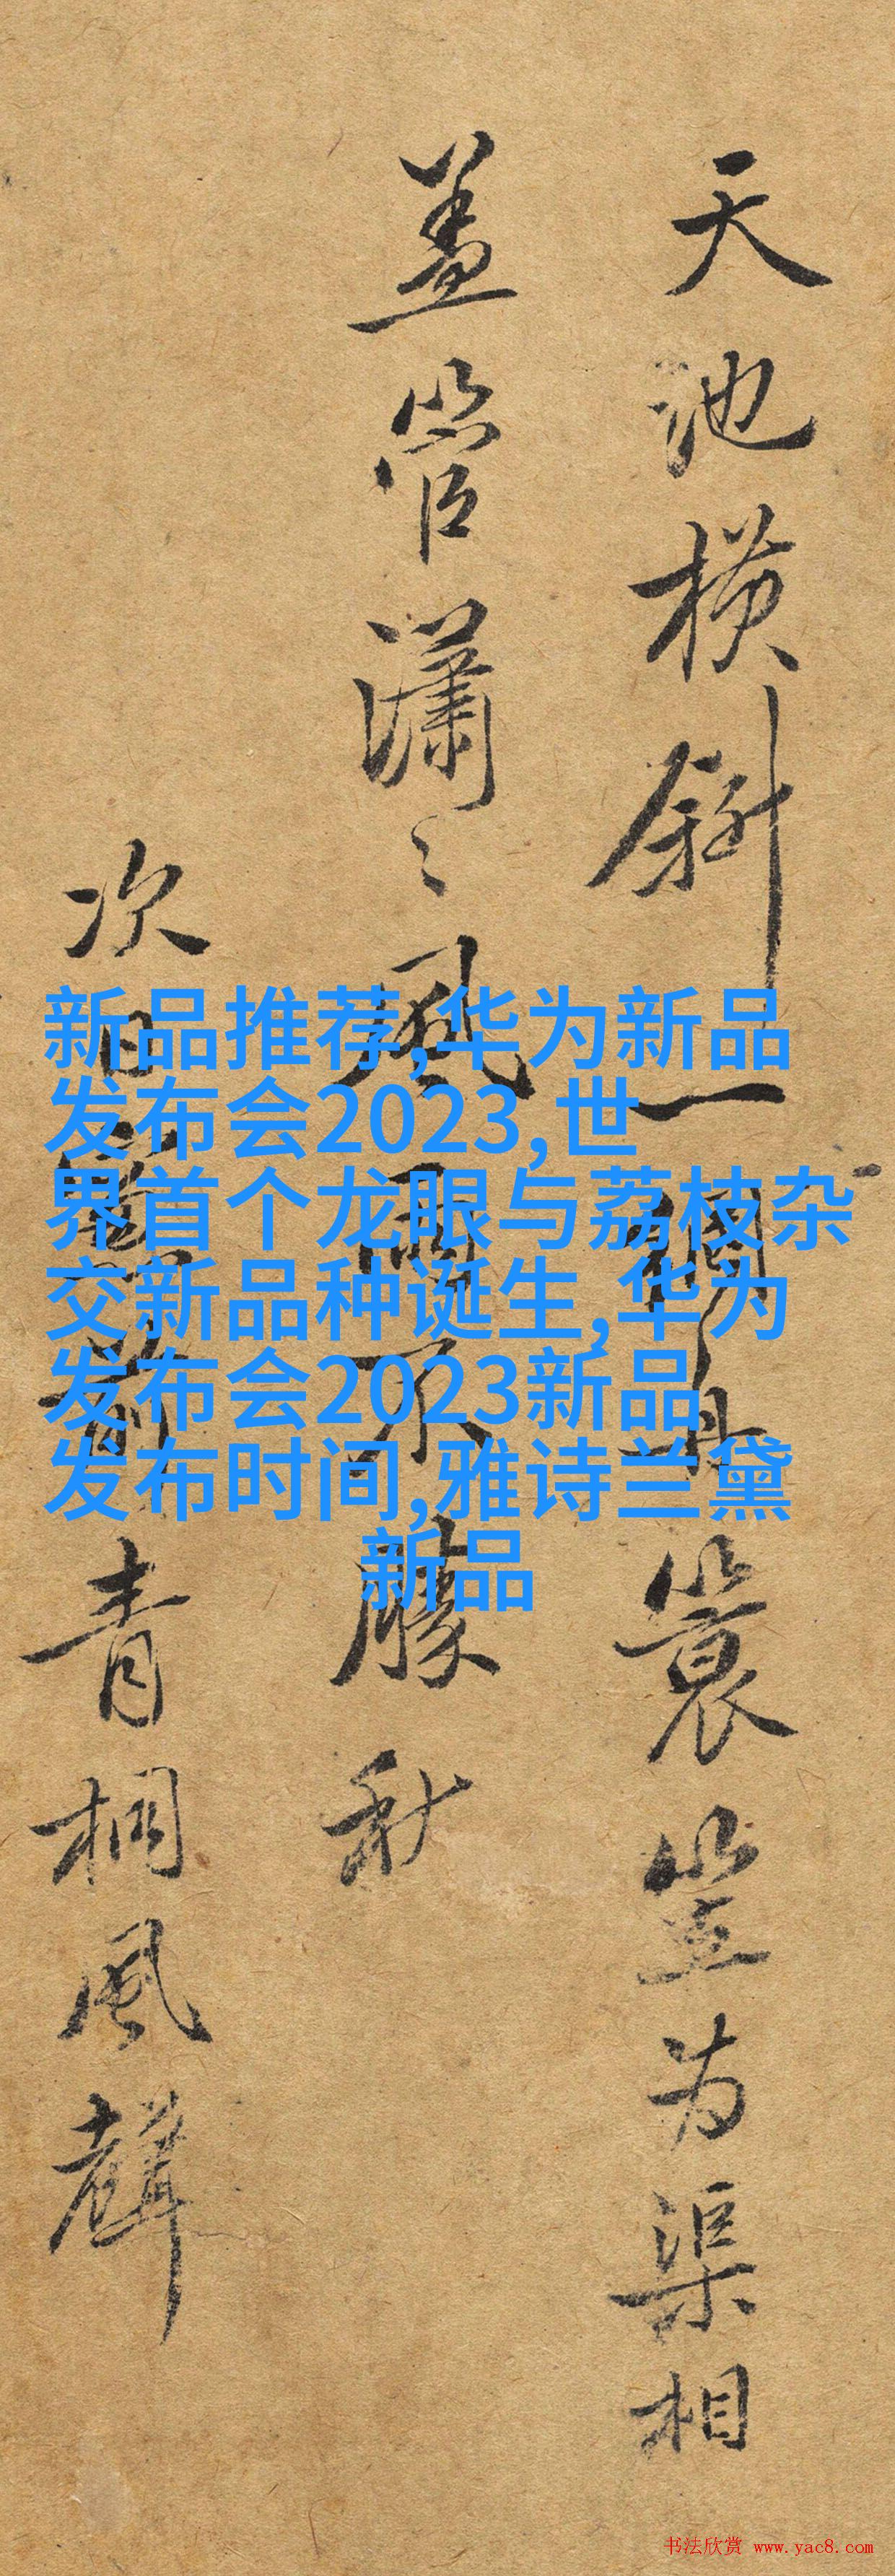 天池橫斜一個舟蓑笠为渠相
盖管瀟〻風雨不勝秋
次日窗前青桐風聲
新品推荐,华为新品
发布会2023,世
界首个龙眼与荔枝杂
交新品种诞生,华为
发布会2023新品
发布时间,雅诗兰黛
新品
书法欣赏 www.yac8.com